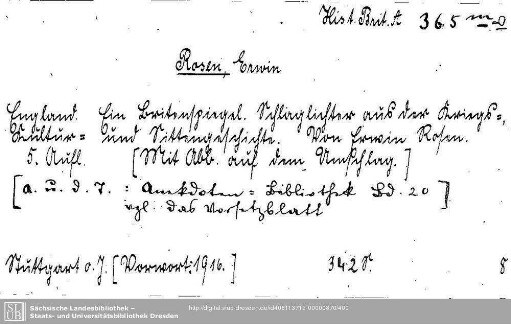 Hist. Brit. A 365 m-o
Rosen, Erwin
England. Ein Britenspiegel. Schlaglichter aus der Kriegs-,
Kultur- und Sittengeschichte. Von Erwin Rosen.
5. Aufl. [Mit Abb. auf dem Umschlag.]
[a. u. d. T.: Anekdoten-Bibliothek Bd. 20]
vgl. das Vorsetzblatt
Stuttgart o. J. [Vorwort: 1916.] 342 S. 8
SLUB Sächsische Landesbibliothek –
Staats- und Universitätsbibliothek Dresden